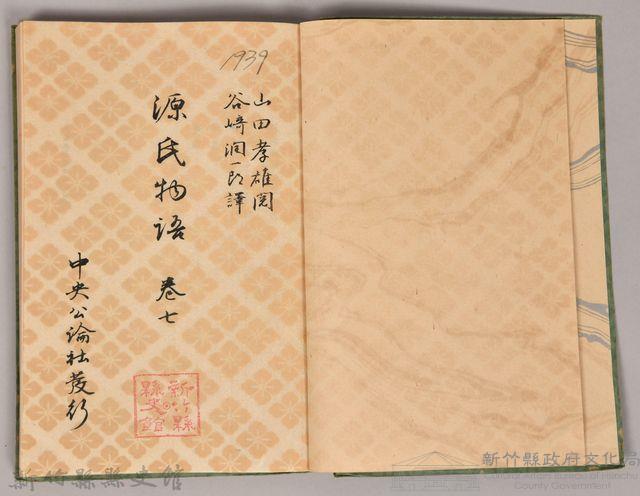 1939
山田孝雄閲
谷崎潤一郎譯
源氏物語 卷七
中央公論社發行
新竹縣
縣史館
新竹縣縣史館
新竹縣政府文化局
Cultural Affairs Bureau of Hsinchu
County Government